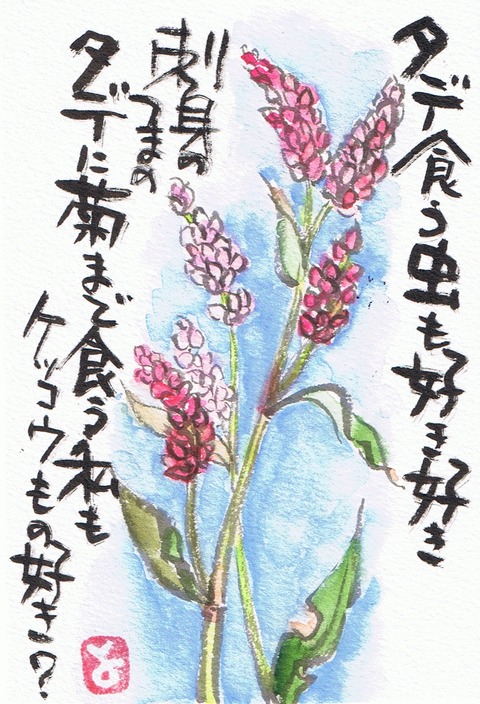 タデ食う虫も好き好き
刺身の
つまの
タデに菊まで食う私も
ケッコウもの好き?
とよ